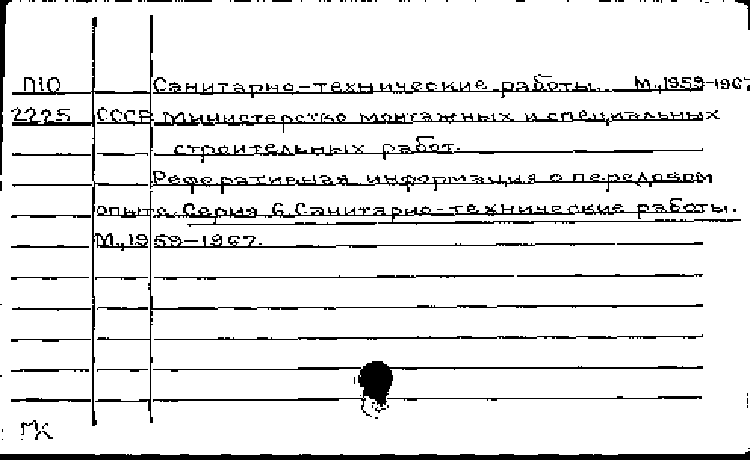 П10 Санитарно-технические работы. М.,1959-1967
2225 СССР Министерство монтажных и специальных
строительных работ.
Реферативная информация о передовом
опыте. Серия 6. Санитарно-технические работы.
М.,1959-1967.
ГК